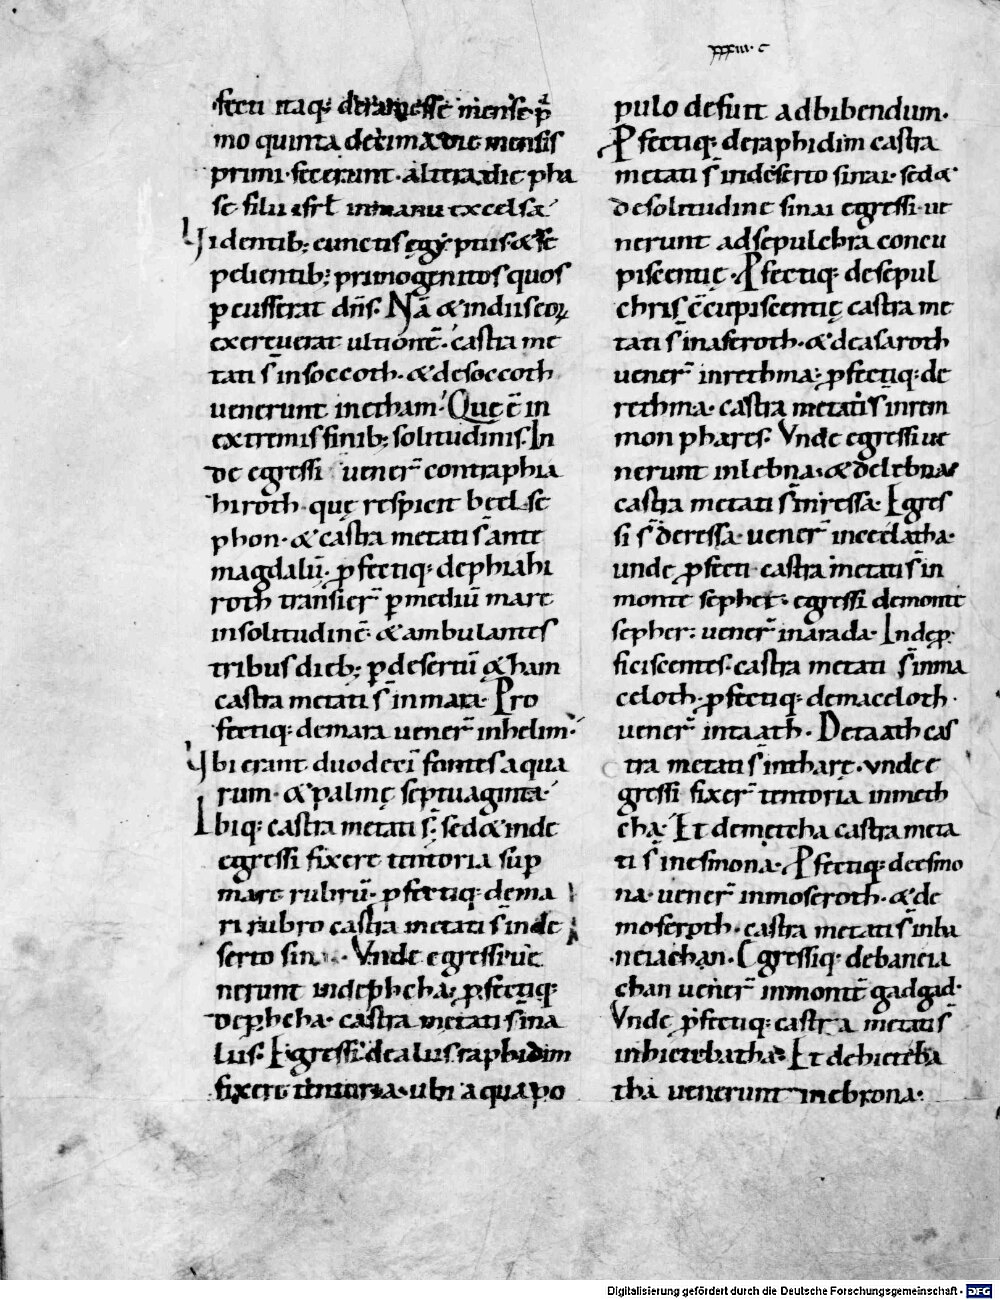 xxxiii·c
fecti itaq; deramesse mense p̄
mo quinta decima die mensis
primi· fecerunt· altera die pha
se filii isrl̄ inmanu excelsa
Videntib; cunctis ęgyptiis & se
pelientib; primogenitos quos
pcusserat dn̄s. Nā & indiis eoꝝ
exercuerat ultionē· castra me
tati s̄ insoccoth· & desoccoth
uenerunt inetham· Quę ē in
extremis finib; solitudinis. In
de egressi uener̄ contraphia
hiroth· quę respicit beelse
phon· & castra metati s̄ ante
magdalū· pfectiq; dephiahi
roth transier̄ p mediū mare
insolitudinē· & ambulantes
tribus dieb; p desertū &ham
castra metati s̄ inmara· Pro
fectiq; demara uener̄ inhelim·
Vbi erant duodeci̅ fontes aqua
rum· & palmę septuaginta·
Ibiq; castra metati s̄· sed & inde
egressi fixere tentoria sup
mare rubrū· pfectiq; dema
ri rubro castra metati s̄ inde
serto sin· Vnde egressi ue
nerunt indephcha· pfectiq;
dephcha· castra metati s̄ ina
lus· Egressi de alus raphidim
fixere tentoria· ubi aqua po
pulo defuit adbibendum·
Pfectiq; deraphidim castra
metati s̄ indeserto sinai· sed &
desolitudine sinai egressi· ue
nerunt adsepulchra concu
piscentię· Pfectiq; desepul
chris c̄cupiscentię castra me
tati s̄ inaseroth· & deasaroth
uener̄ inrethma· pfectiq; de
rethma· castra metati s̄ inrem
mon phares· Vnde egressi ue
nerunt inlebna· & delebna
castra metati s̄ inressa· Egres
si s̄ deressa· uener̄ inceelatha·
unde pfecti castra metati s̄ in
monte sepher· egressi demonte
sepher· uener̄ inarada· Inde p
ficiscentes· castra metati s̄ inma
celoth· pfectiq; demaceloth·
uener̄ intaath· Detaath cas
tra metati s̄ inthare· vnde e
gressi fixer̄ tentoria inmeth
cha· Et demetcha castra meta
ti s̄ inesmona· Pfectiq; deesmo
na· uener̄ inmoseroth· & de
moseroth· castra metati s̄ inba
neiachan· Egressiq; debaneia
chan uener̄ inmontē gadgad·
Vnde pfectiq; castra metati s̄
inhietebatha· Et dehieteba
tha uenerunt inebrona·
Digitalisierung gefördert durch die Deutsche Forschungsgemeinschaft - DFG